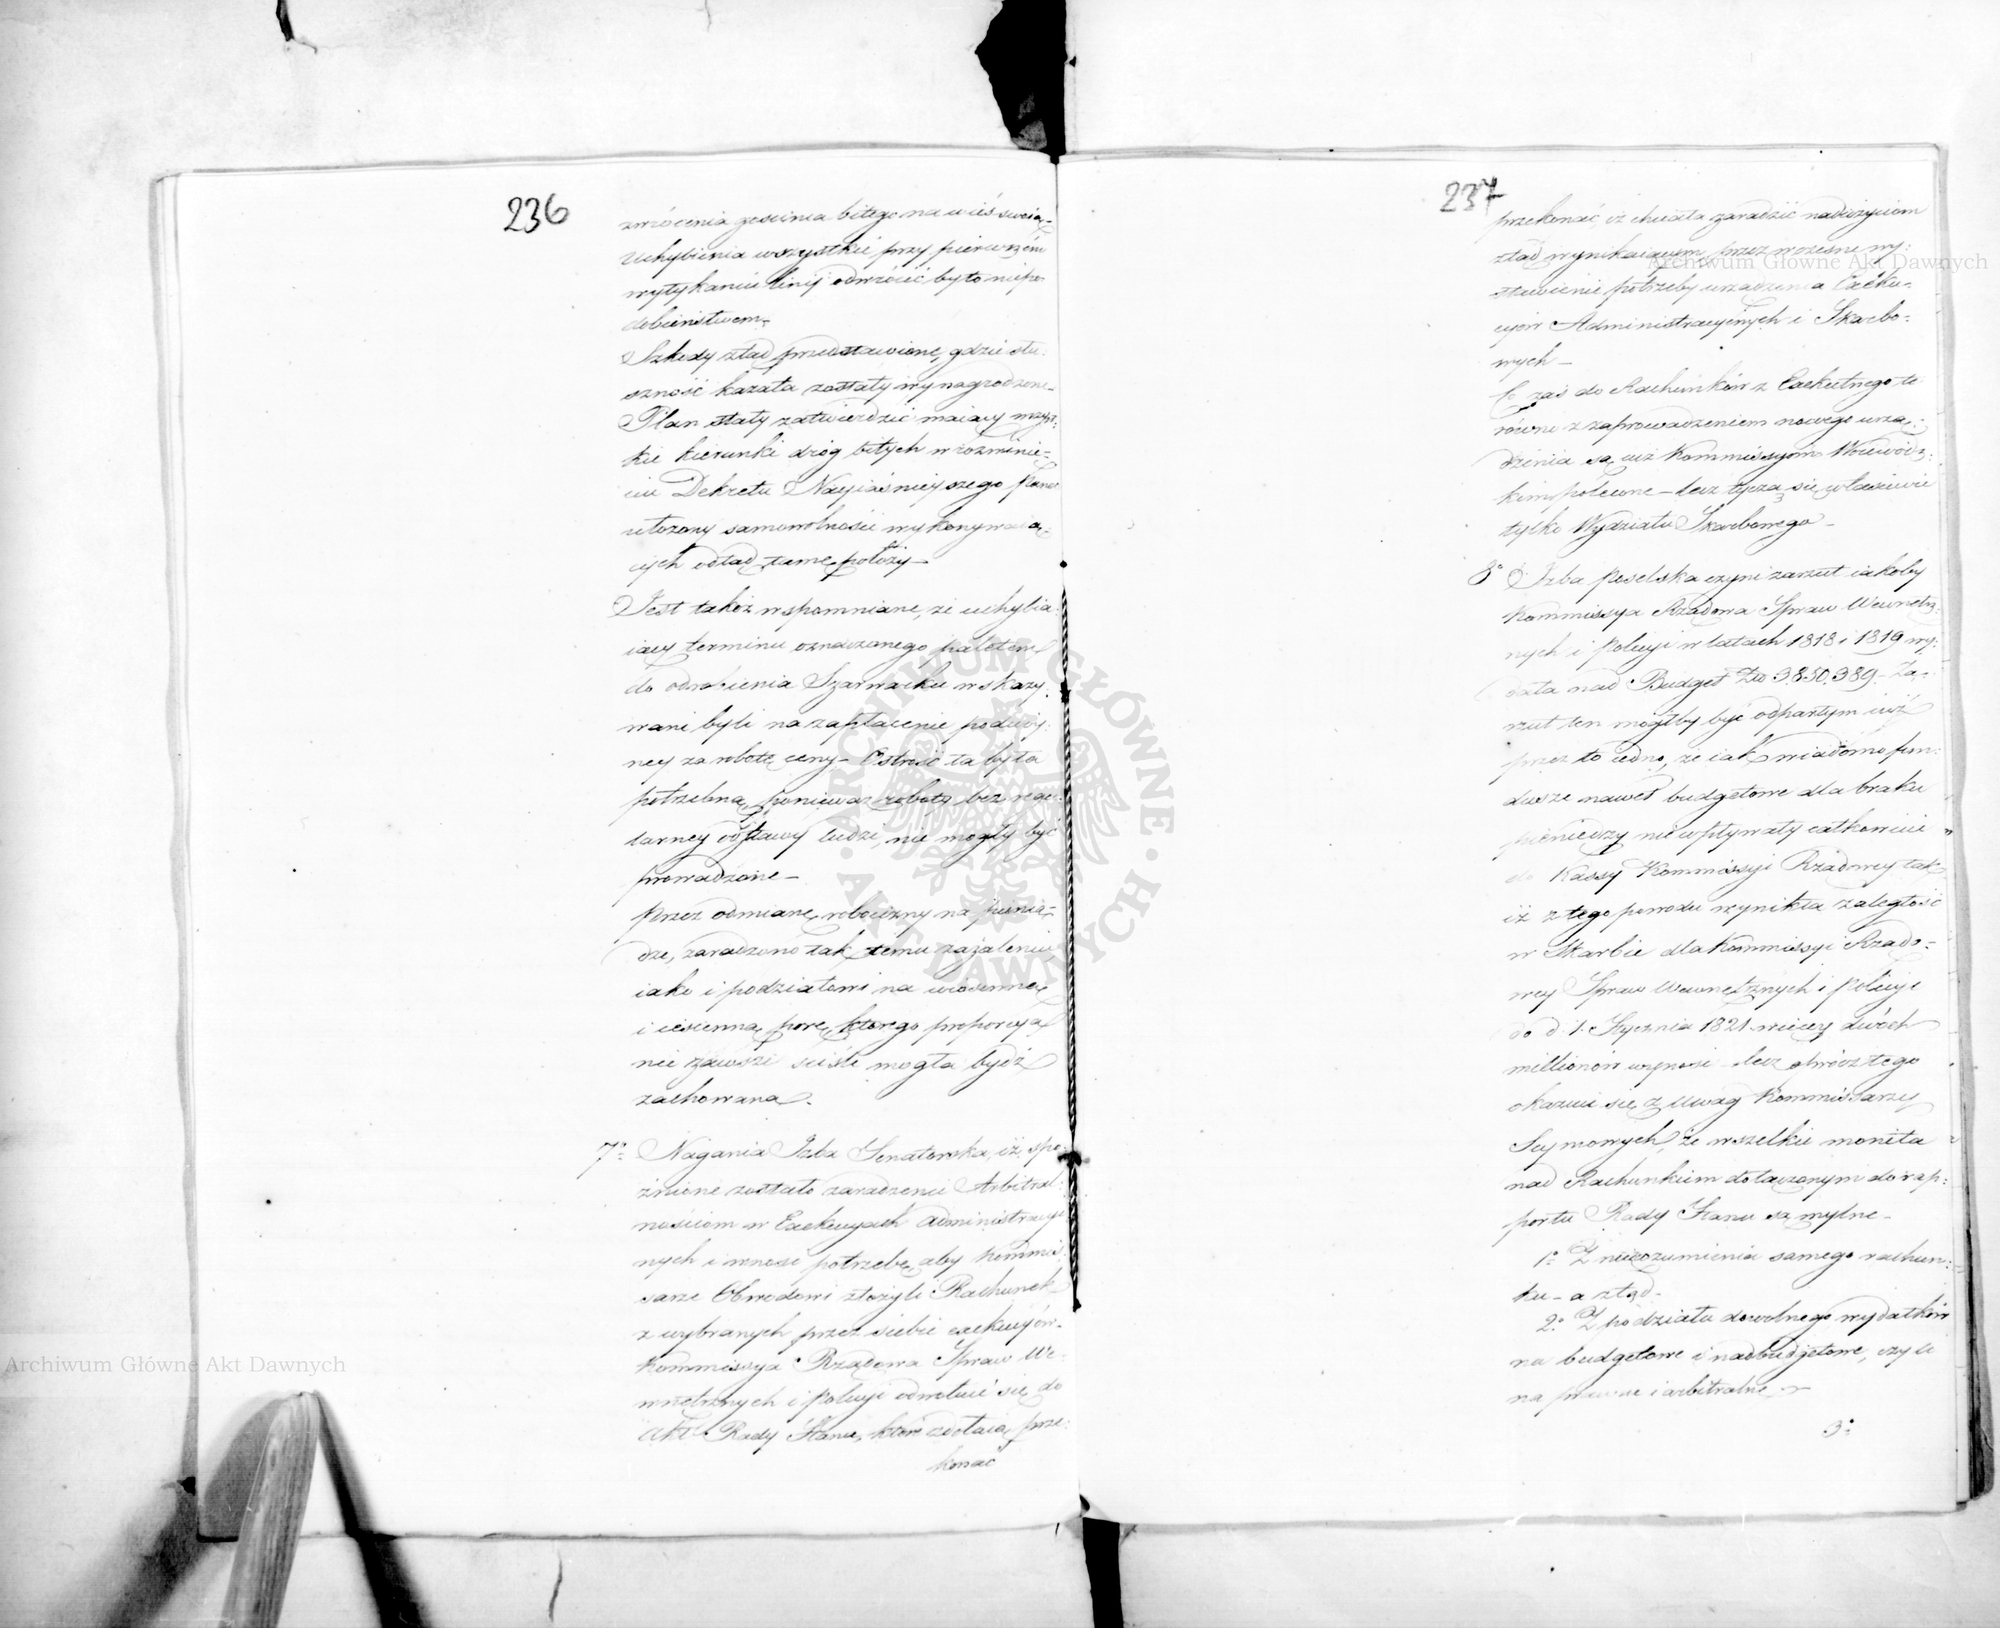 236
zwrócenia gościńca bitego na wieś swoią.
Uchybienia wszystkie przy pierwszém
wytykaniu linij odwrócić było niepo-
dobieństwem.
Szkody ztąd przedstawione, gdzie słu-
szność kazała zostały wynagrodzone.
Plan stały zatwierdzić maiący wszyst-
kie kierunki dróg bitych w rozwinię-
ciu Dekretu Nayiaśnieyszego Pana
ułożony samowolności wykonywaią-
cych odtąd tamę położy.
Jest takoż wspomniane, że uchybia-
iący terminu oznaczonego paletem
do odrobienia Szarwarku wskazy-
wani byli na zapłacenie podwóy-
ney za robotę ceny - Ostrość ta była
potrzebną, ponieważ roboty bez regu-
larney odstawy ludzi, nie mogły być
prowadzone -
Przez odmianę robocizny na pienią-
dze, zaradzono tak temu zażaleniu,
iako i podziałowi na wiosenną
i iesienną porę, którego proporcya
nie zawsze ściśle mogła bydź
zachowana.
7° Nagania Izba Senatorska, iż spó-
źnione zostało zaradzenie Arbitral-
nościom w Exekucyach Administracyi-
nych i wnosi potrzebę, aby Kommis-
sarze Obwodowi złożyli Rachunek
z wybranych przez siebie exekucyów.
Kommissya Rządowa Spraw We-
wnętrznych i Policyi odwołuie się do
Akt Rady Stanu, które zdołaią prze-
konać
237
przekonać, iż chciała zaradzić nadużyciom
ztąd wynikaiącym, przez wczesne wy-
stawienie potrzeby urządzenia Exeku-
cyów Administracyinych i Skarbo-
wych -
Co zaś do Rachunków z Exekutnego te
równo z zaprowadzeniem nowego urzą-
dzenia są iuż Kommissyom Woiewódz-
kim polecone - lecz tyczą się właściwie
tylko Wydziału Skarbowego -
8° Izba Poselska czyni zarzut iakoby
Kommissya Rządowa Spraw Wewnętrz-
nych i Policyi w latach 1818 i 1819 wy-
dała nad Budget Złp 3.850.389. Za-
rzut ten mógłby być odpartym iuż
przez to iedno, że iak wiadomo fun-
dusze nawet budgetowe dla braku
pieniędzy nie wpływały całkowicie
do Kassy Kommissyi Rządowey tak
iż z tego powodu wynikła zaległość
w Skarbie dla Kommissyi Rządo-
wey Spraw Wewnętrznych i Policyi
do d. 1. Stycznia 1821 więcey dwóch
millionów wynosi - lecz oprócz tego
okazuie się z uwag Kommissarzy
Seymowych, że wszelkie monita
nad Rachunkiem dołączonym do rap-
portu Rady Stanu są mylne -
1° Z niezrozumienia samego rachun-
ku - a ztąd -
2° Z podziału dowolnego wydatków
na budgetowe i nadbudgetowe, czyli
na prawne i arbitralne -
3°
Archiwum Główne Akt Dawnych
Archiwum Główne Akt Dawnych
ARCHIWUM GŁÓWNE · AKT DAWNYCH ·